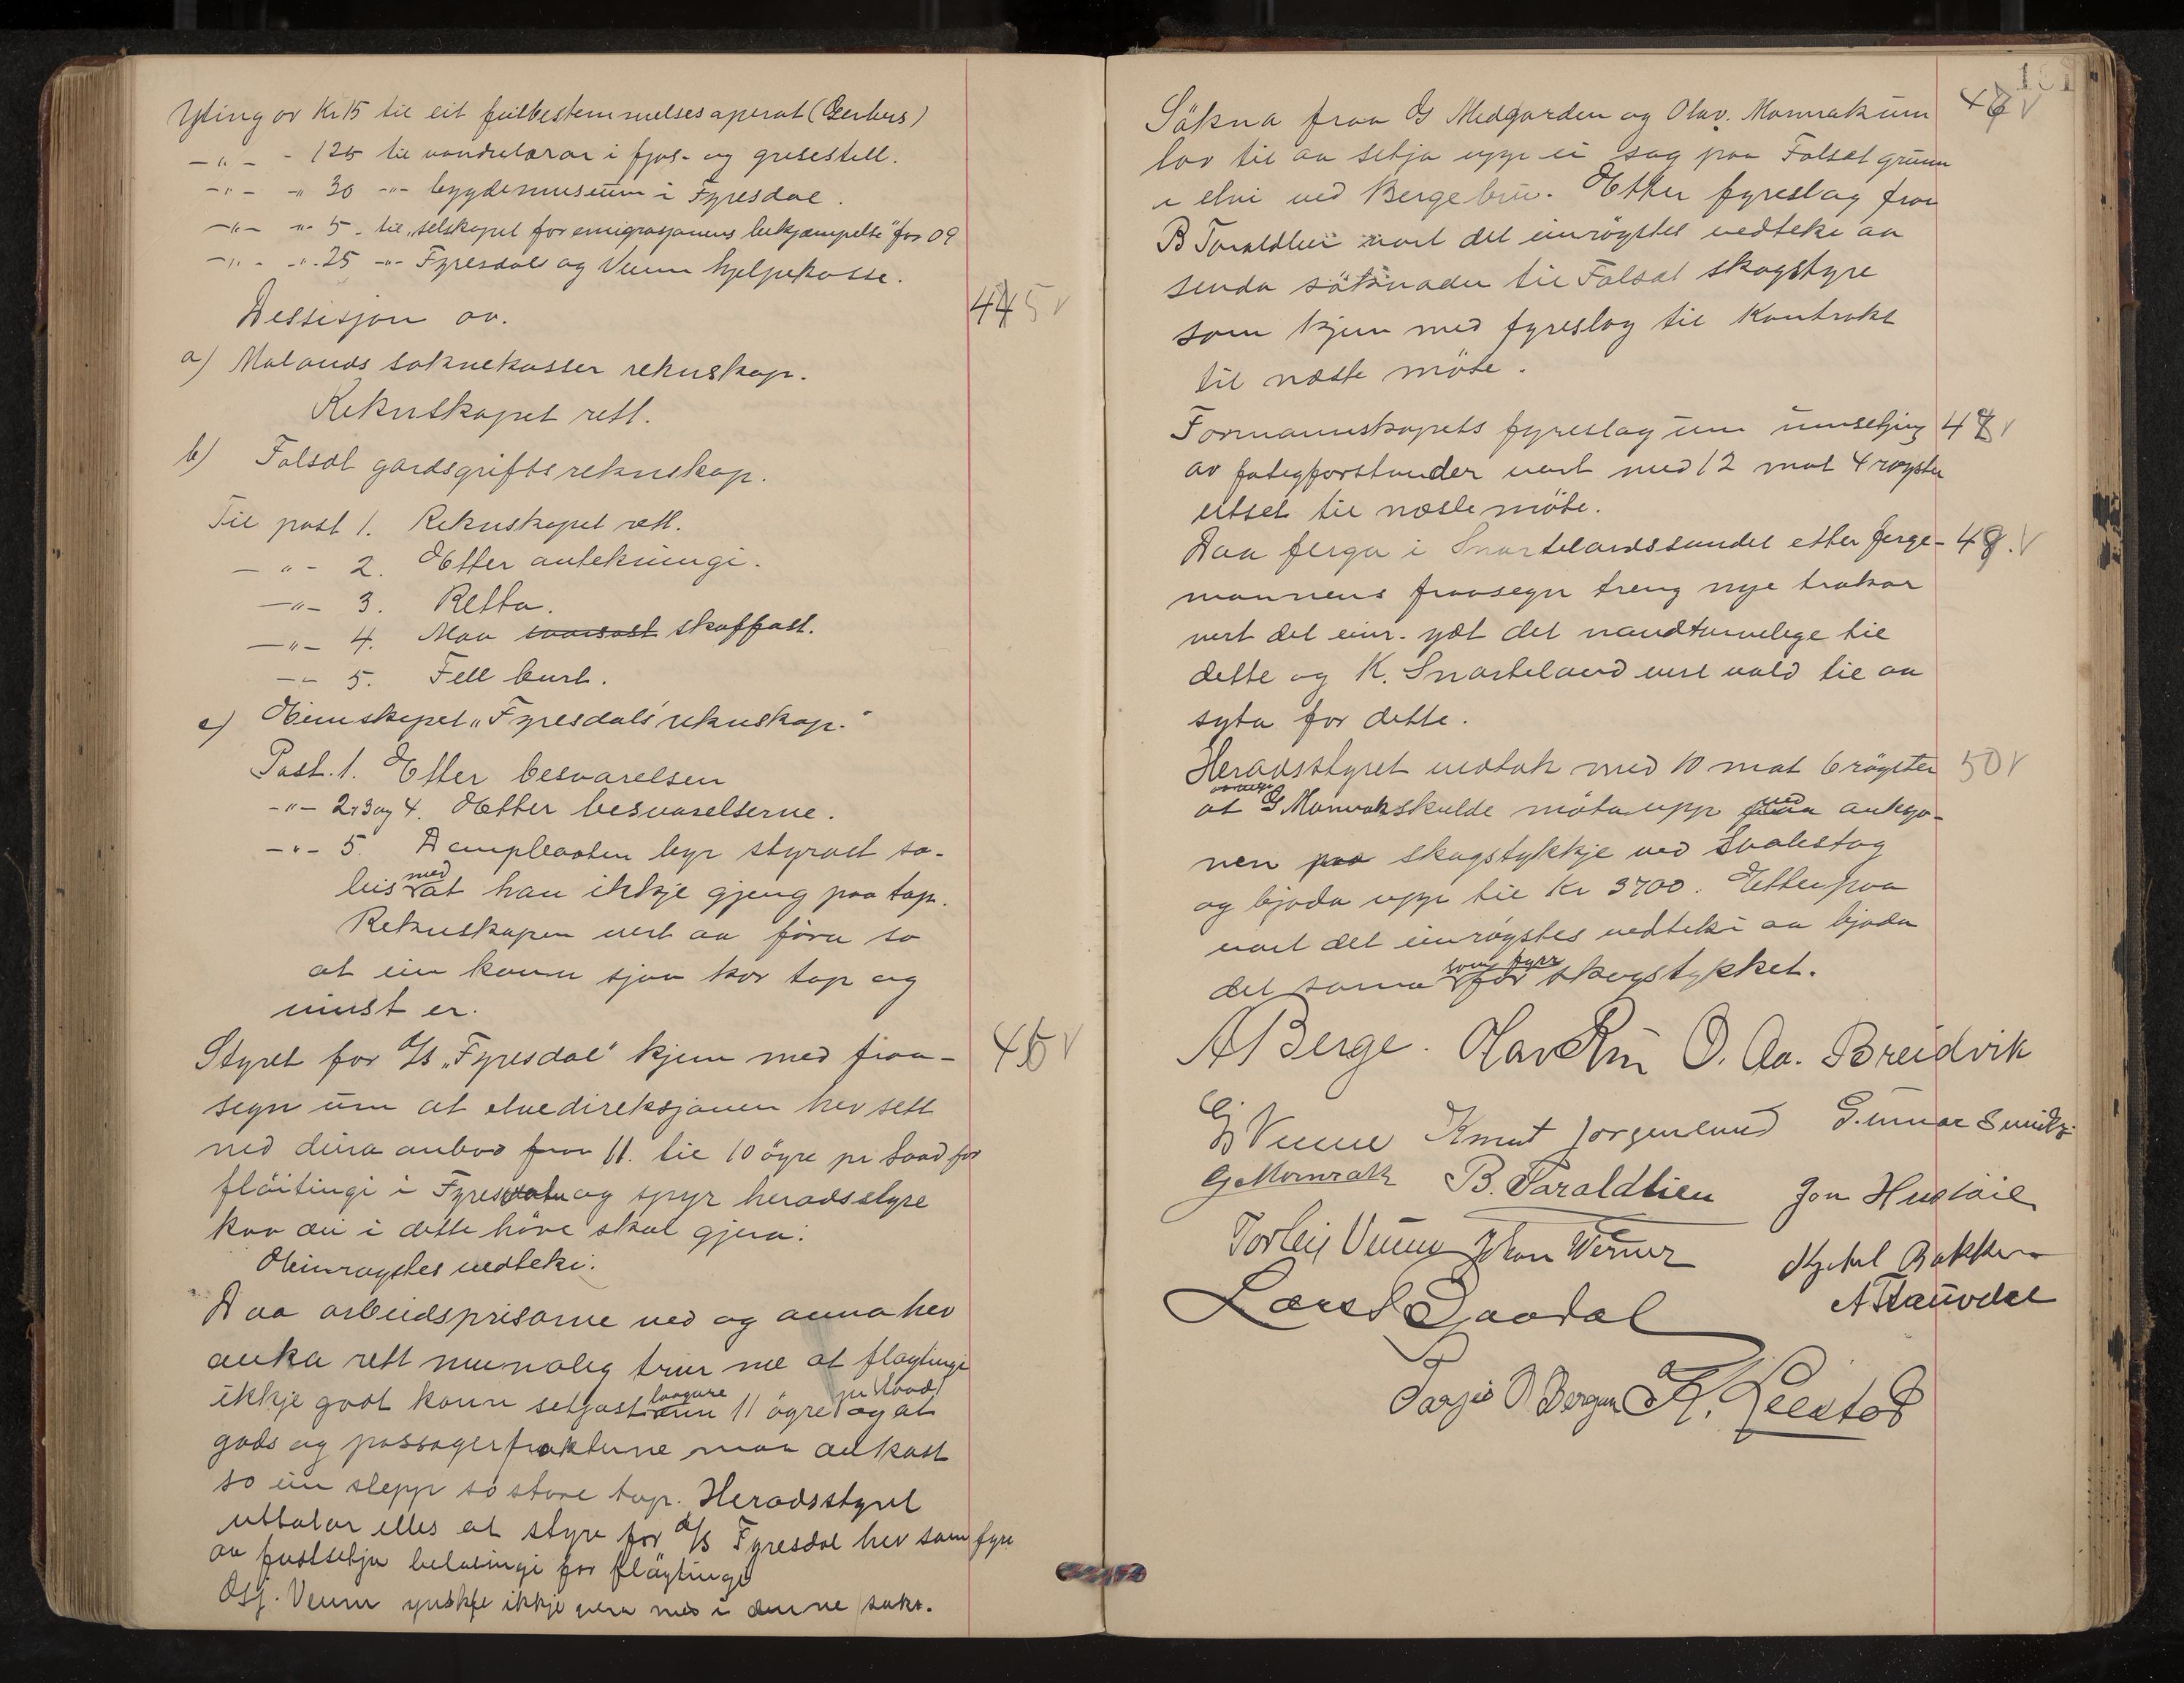 Yting av Kr 15 til eit feitbestemmelsesaperat (Gerbers)
– „ – - 125 til vandrelærar i fjos- og grisestell.
– „ – „ 30 –„– bygdemuseum i Fyresdal.
– „ – „ 5 - til „selskapet for emigrasjonens bekjæmpelse" for 09
– „ – „ 25 –„– Fyresdal og Veum hjelpekasse.
Dessisjon av. 445 v
a) Molands soknekasser rekneskap.
Rekneskapet rett.
b) Folsæ gardsgrifts rekneskap.
Til post 1. Rekneskapet rett.
– „ – 2. Etter antekningi.
– „ – 3. Retta.
– „ – 4. Maa svarast skaffast.
– „ – 5. Fell burt.
c) Eimskipet „Fyresdals" rekneskap.
Post. 1. Etter besvarelsen
– „ – 2, 3 og 4. Etter besvarelserne.
– „ – 5. Dampbaaten byr styrast so-
leis med at han ikkje gjeng paa tap.
Rekneskapen vert aa föra so
at ein kann sjaa kor tap og
vinst er.
Styret for A/s „Fyresdal" kjem med fraa- 46 v
segn um at elvedireksjonen hev sett
ned deira anbod fraa 11. til 10 öyre pr. tved for
flöitingi i Fyresvatn og spyr heradsstyre
kva dei i dette höve skal gjera.
Einröystes vedteki.
Daa arbeidsprisarne ved og anna hev
auka rett munaleg trur me at flöytingi
ikkje godt kann setjast laagare enn 11 öyre pr tvad og at
gods og passagerfrakterne maa aukast
so ein slepp so store tap. Heradsstyret
uttalar elles at styre for A/s Fyresdal hev som fyre
aa fastsetja betalingi for flöytingi
Osj. Veum ynskje ikkje vera med i denne sake.
181
Sökna fraa G Medgarden og Olav. Momrak um 47 v
lov til aa setja upp ei sag paa Folsæ grunn
i elvi ved Bergebru. Etter fyreslag fraa
B Taraldlien vart det einröystes vedteke aa
senda söknaden til Folsæ skogstyre
som kjem med fyreslag til Kontrakt
til næste möte.
Formannskapets fyreslag um umsetjing 48 v
av fatigforstander vart med 12 mot 4 röyster
utset til næste möte.
Daa ferga i Snartelandssundet etter ferge- 49. v
mannens fraasegn treng nye trakar
vert det einr. yæt det naudturvelege til
dette og K. Snarteland vert vald til aa
syta for dette.
Heradsstyret vedtok med 10 mot 6 röyster 50 v
at G Momrak skulde möta upp ved auksjo-
nen paa skogstykkje ved Svalestog
og bjoda upp til Kr 3700. Etterpaa
vart det einröystes vedteki aa bjoda
det sama som fyrr for skogstykket.
A Berge. Olav Rui O. Aa. Breidvik
Gj Veum Knut Jorgenlund Gunnar Smidz
G Momrak B. Taraldlien Jon Hustöil
Torleiv Veum Johan Werner Kjetil Bakken
Lars S Gaadal A Flaujordet
Tarjei O Bergan K. Leestöl